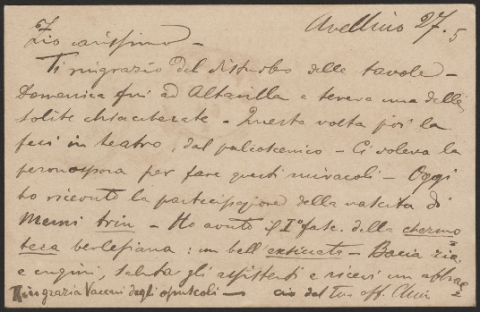 Avellino 27.5
Zio carissimo –
Ti ringrazio del disturbo delle tavole –
Domenica fui ad Altavilla a tenere una delle
solite chiacchierate – Questa volta poi la
feci in teatro, dal palcoscenico – Ci voleva la
peronospora per fare questi miracoli – Oggi
ho ricevuto la partecipazione della nascita di
Memi trin – Ho avuto il Iº fasc. della chermo=
teca berlesiana: un bell' – Bacia zia
e cugini, saluta gli assistenti e ricevi un abbrac=
Ringrazia Vaccari degli opuscoli – cio dal tuo aff.